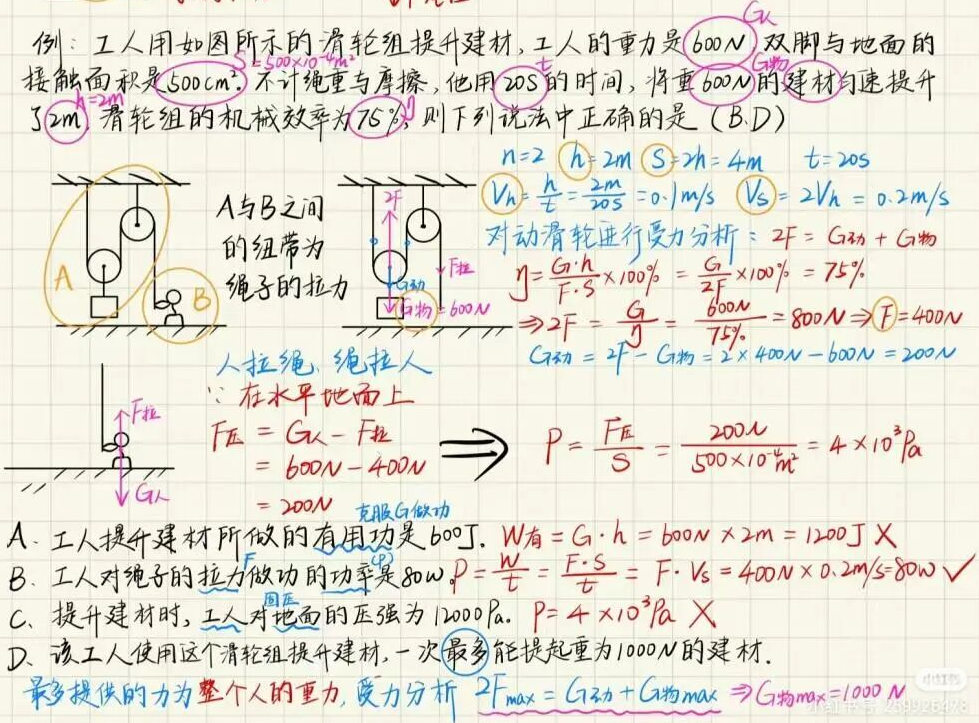 G人
例：工人用如图所示的滑轮组提升建材，工人的重力是600N，双脚与地面的
S=500×10⁻⁴m² t G物
接触面积是500cm²。不计绳重与摩擦，他用20S的时间，将重600N的建材匀速提升
h=2m η
了2m，滑轮组的机械效率为75%，则下列说法中正确的是（B.D）
n=2 h=2m S=2h=4m t=20s
Vh=h/t=2m/20s=0.1m/s Vs=2Vh=0.2m/s
对动滑轮进行受力分析：2F=G动+G物
η=G·h/F·S×100%=G/2F×100%=75%
⇒2F=G/η=600N/75%=800N⇒F=400N
G动=2F-G物=2×400N-600N=200N
A
B
A与B之间
的纽带为
绳子的拉力
2F
F拉
G动
G物=600N
F拉
G人
人拉绳、绳拉人
∵在水平地面上
F压=G人-F拉
=600N-400N
=200N
⇒ P=F压/S=200N/500×10⁻⁴m²=4×10³Pa
克服G做功
A、工人提升建材所做的有用功是600J. W有=G·h=600N×2m=1200J X
F (P)
B、工人对绳子的拉力做功的功率是80w。P=W/t=F·S/t=F·Vs=400N×0.2m/s=80w ✓
固压
C、提升建材时，工人对地面的压强为12000Pa. P=4×10³Pa X
D、该工人使用这个滑轮组提升建材，一次最多能提起重为1000N的建材.
最多提供的力为整个人的重力，受力分析 2Fmax=G动+G物max ⇒G物max=1000N
小红书